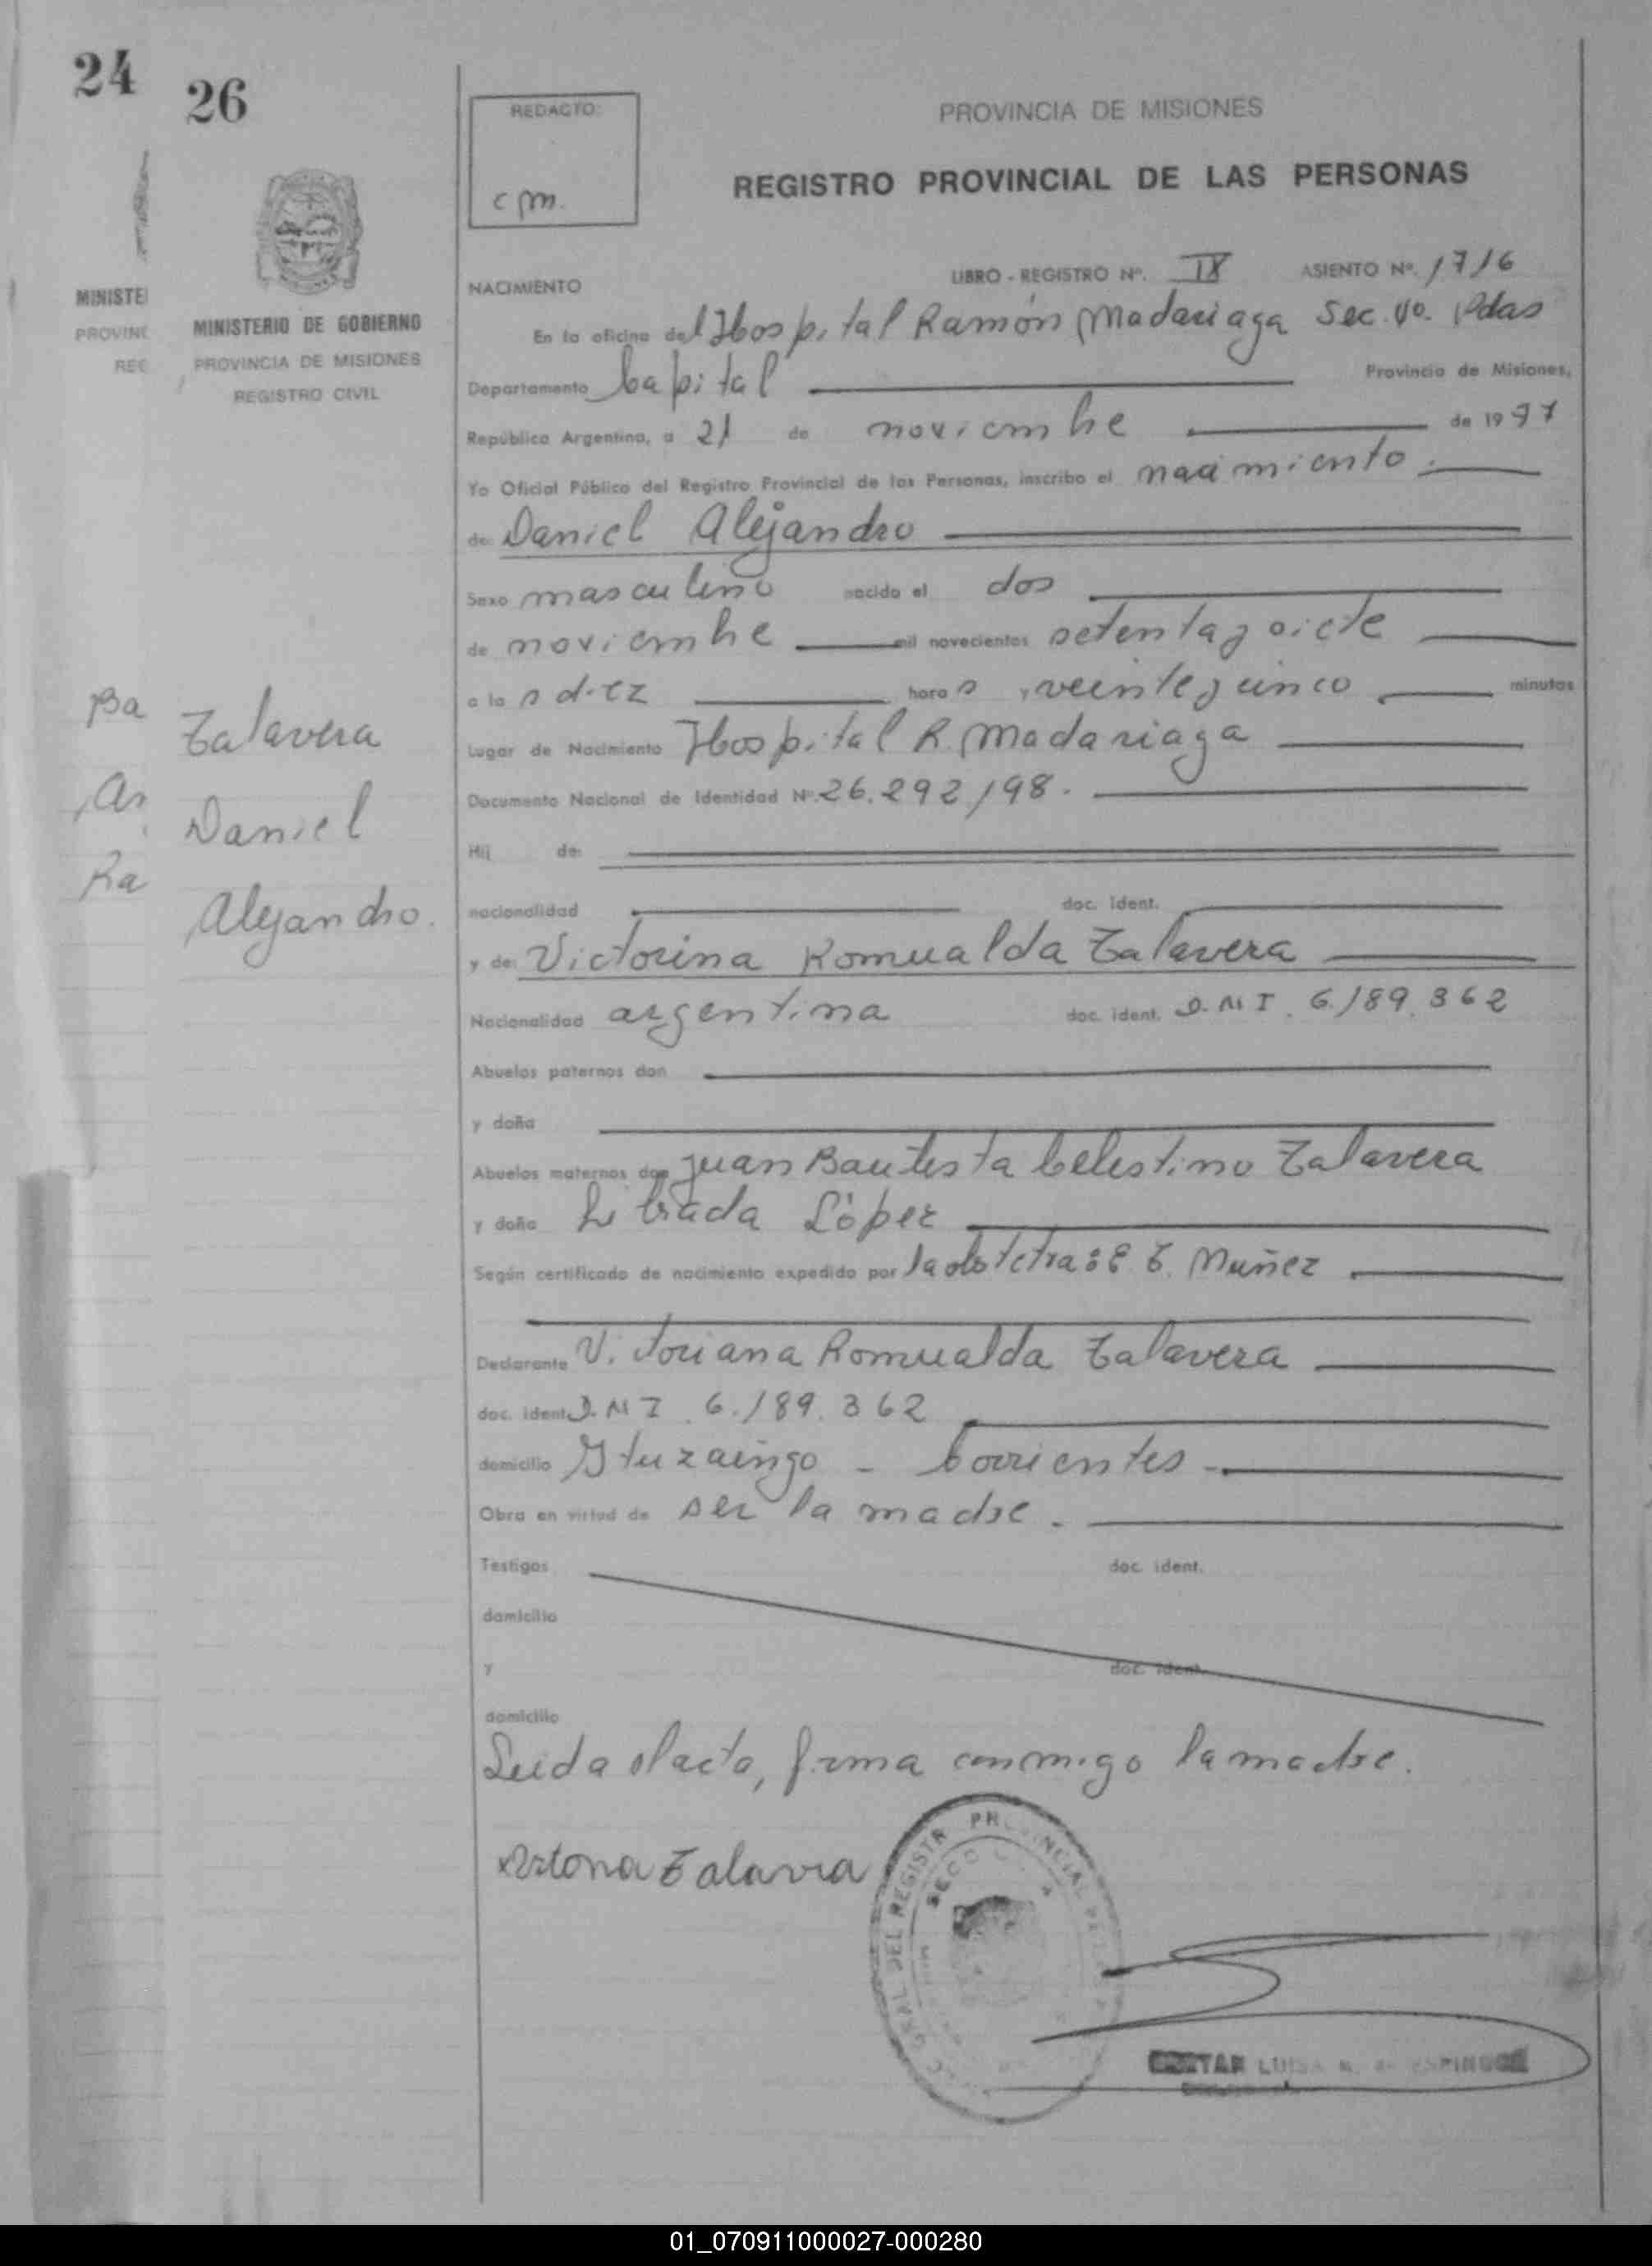 24
26
REDACTO:
c m.
PROVINCIA DE MISIONES
REGISTRO PROVINCIAL DE LAS PERSONAS
MINISTE
PROVINC
REG
MINISTERIO DE GOBIERNO
PROVINCIA DE MISIONES
REGISTRO CIVIL
NACIMIENTO
LIBRO - REGISTRO Nº. IX ASIENTO Nº. 1716
En la oficina del Hospital Ramón Madariaga Sec. Pdas
Departamento Capital Provincia de Misiones,
República Argentina, a 21 de noviembre de 1977
Yo Oficial Público del Registro Provincial de las Personas, inscribo el nacimiento
de: Daniel Alejandro
Sexo masculino nacido el dos
de noviembre mil novecientos setenta y siete
a las diez horas y veinte y cinco minutos
Lugar de Nacimiento Hospital R. Madariaga
Documento Nacional de Identidad Nº. 26.292.198.
Hij de:
nacionalidad doc. ident.
y de: Victorina Romualda Talavera
Nacionalidad argentina doc. ident. D.N.I. 6.189.362
Abuelos paternos don
y doña
Abuelos maternos don Juan Bautista Celestino Talavera
y doña Librada López
Según certificado de nacimiento expedido por la obstetra: E. T. Muñez
Declarante Victoriana Romualda Talavera
doc. ident. D.N.I. 6.189.362
domicilio Ituzaingo - Corrientes -
Obra en virtud de ser la madre.
Testigos doc. ident.
domicilio
y doc. ident.
domicilio
Leida el acta, firma conmigo la madre.
Talavera
Daniel
Alejandro.
Ba
Ra
Talavera
01_070911000027-000280